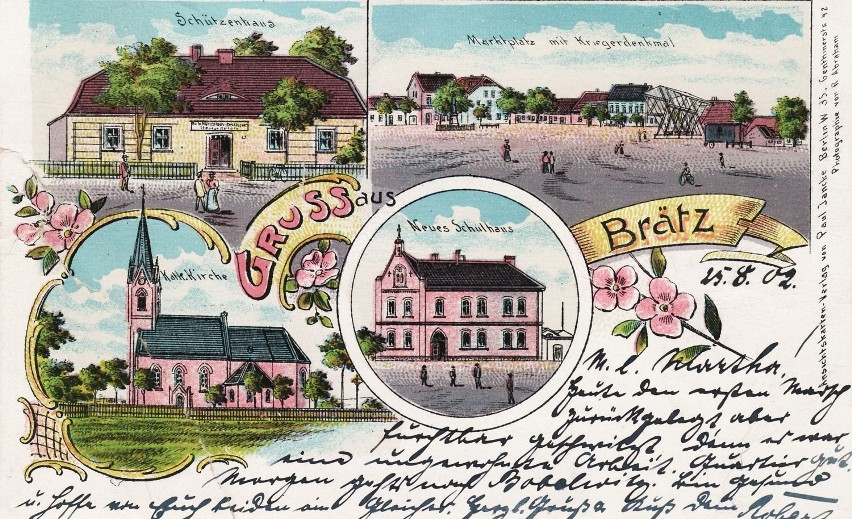 Schützenhaus
Marktplatz mit Kriegerdenkmal
Gruss aus
Brätz
Kath. Kirche
Neues Schulhaus
Ansichtskarten-Verlag von Paul Jancke Berlin W 35, Genthinerstr. 42
Photographie von R. Abraham
15.8.02.
M. l. Martha,
Heute den ersten Marsch
zurückgelegt aber
furchtbar geschwitzt denn es war
eine ungewohnte Arbeit. Quartier gut.
Morgen gehts nach Bobelwitz. Bin gesund
u. hoffe von Euch beiden ein Gleiches. Herzl. Grüße Aus dem